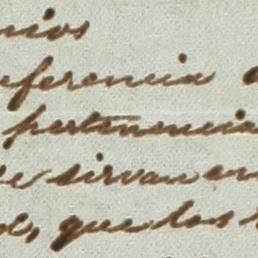 nios
eferencia
pertenencia
se sirvan en
que los